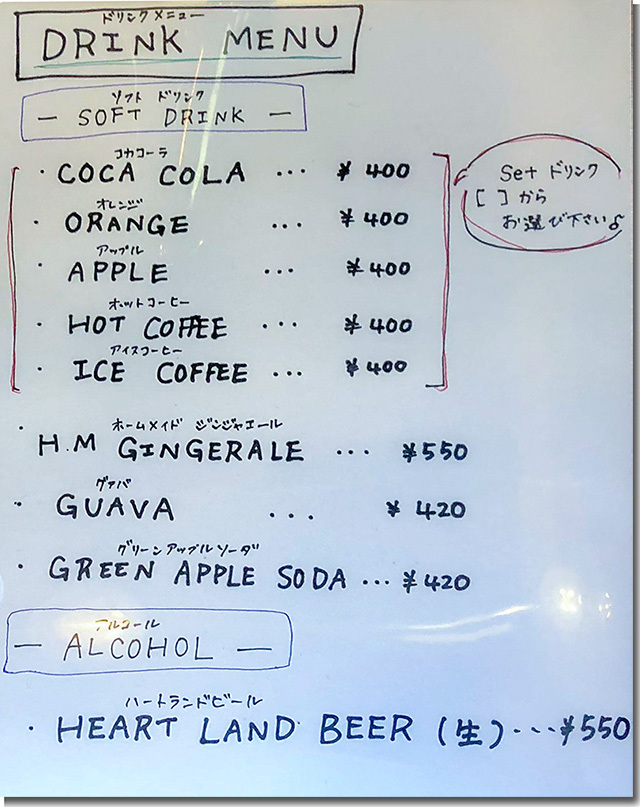 ドリンクメニュー
DRINK MENU
ソフト ドリンク
— SOFT DRINK —
コカコーラ
・COCA COLA ... ¥400
オレンジ
・ORANGE ... ¥400
アップル
・APPLE ... ¥400
ホットコーヒー
・HOT COFFEE ... ¥400
アイスコーヒー
・ICE COFFEE ... ¥400
Set ドリンク
[ ]から
お選び下さい♪
ホームメイド ジンジャエール
・H.M GINGERALE ... ¥550
グァバ
・GUAVA ... ¥420
グリーンアップルソーダ
・GREEN APPLE SODA ... ¥420
アルコール
— ALCOHOL —
ハートランドビール
・HEART LAND BEER (生)...¥550